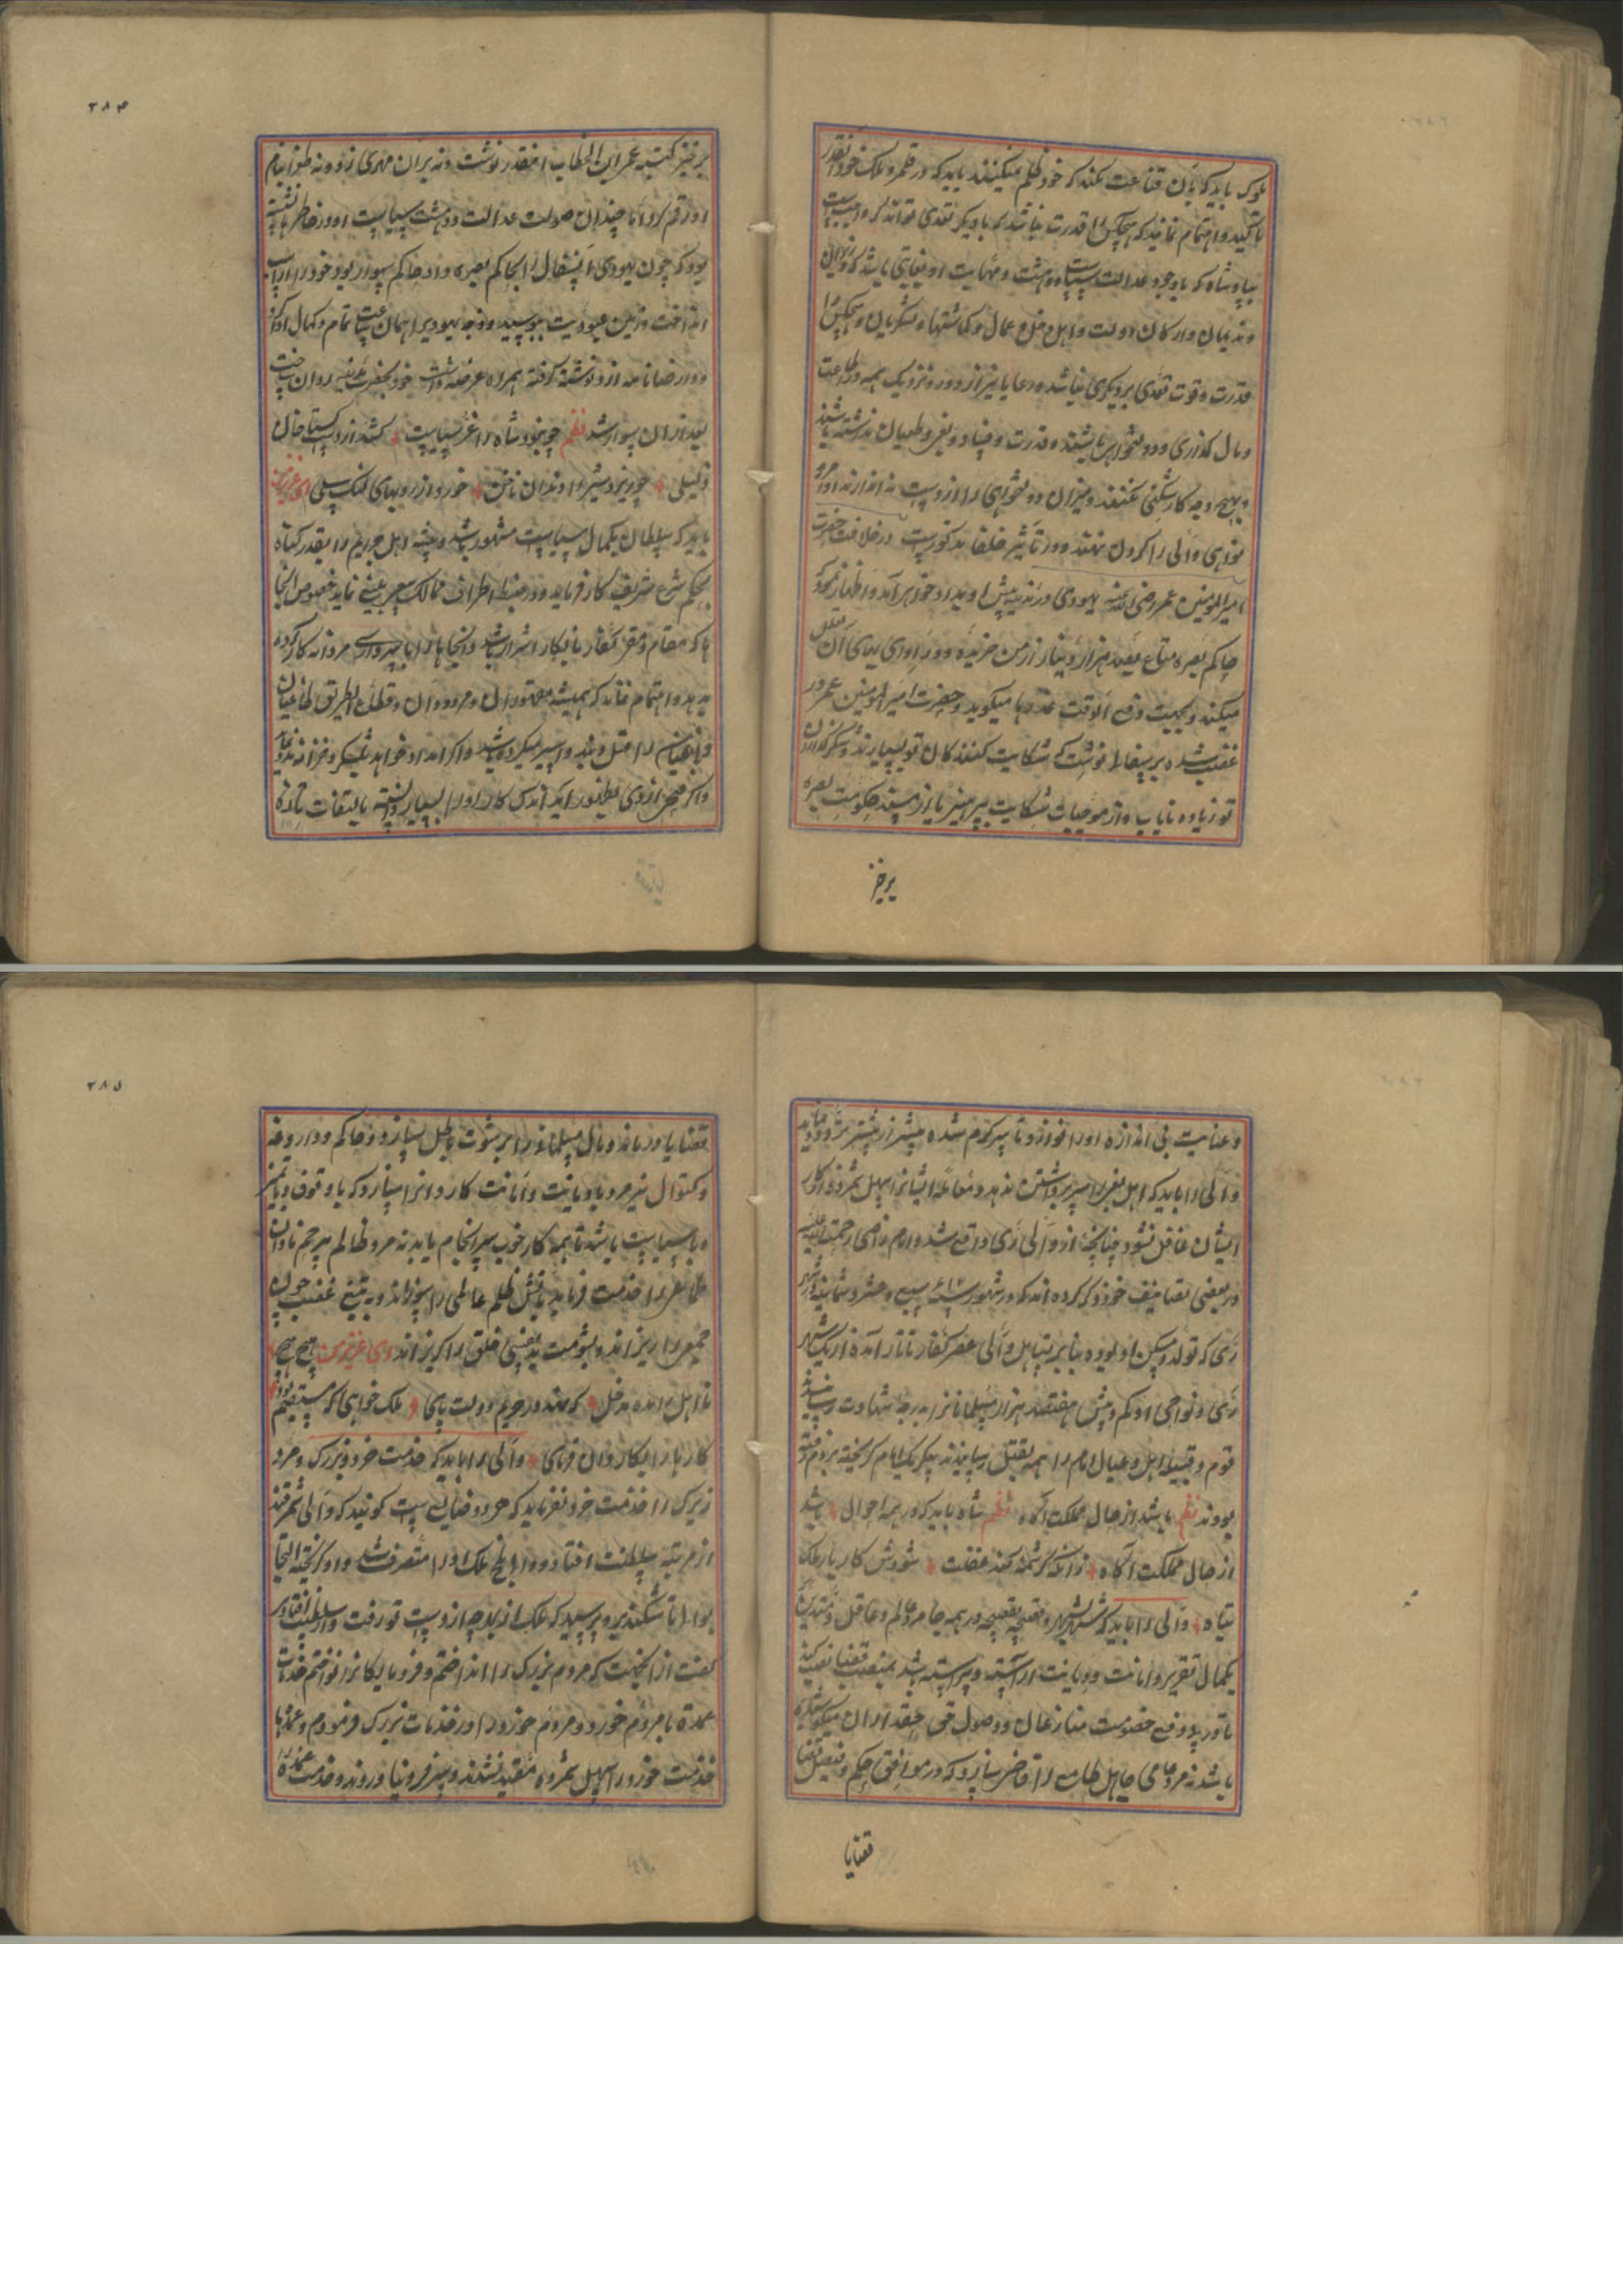 ملوک باید که بآن قناعت نکند که خود ظلم نمیکنند باید که در قلمرو ملک خود آنقدر
تاکید و اهتمام نمایند که هیچکس را قدرت نباشد که با دیگر تعدی تواند کرد
بپادشاه که باوجود عدالت سیاست و دهشت و مهابت او بغایتی باشد که وزیران
و ندیمان و ارکان دولت و اهل دخل و عمال و گماشتها و لشکریان و هیچکس را
قدرت و قوت تعدی بر دیگری نباشد و رعایا نیز از دور و نزدیک همه در اطاعت
و مال گذاری و دولتخواهی باشند و قدرت و فساد و بغی و طغیان نداشته باشند
و بهیچ وجه کارشکنی نکنند و میزان دولتخواهی را از دست نه اندازند
نواهی والی را گردن نهند و در تأثیر خلفا مذکورست در خلافت حضرت
امیرالمؤمنین عمر رضی الله عنه یهودی در مدینه پیش او بداد خواهی آمد و اظهار نمود که
حاکم بصره متاع بصد هزار دینار از من خریده و در ادای بهای آن تعلل
میکند و بجهت دفع الوقت عذرها میگوید حضرت امیرالمؤمنین عمر در
غضب شده بر سفال نوشت که شکایت کنندگان تو بسیارند و شکرگذاران
تو زیاده نایاب و از موجبات شکایت بپرهیز یا از مسند حکومت بصره
برخیز
٢٨٤
برخیز کتبه عمر ابن الخطاب اینقدر نوشت و نه بر آن مهری زد و نه طغرا بنام
او رقم کرد اما چندان صولت عدالت و دهشت سیاست او در خاطرها نشسته
بود که چون یهودی آن سفال را بحاکم بصره داد حاکم سوار بود خود را از اسپ
انداخت و زمین عبودیت ببوسید و وجه یهودی را همان ساعت تمام و کمال ادا کرد
و رضانامه ازو نوشته گرفته همراه عرضه داشت خود بحضرت مدینه روان ساخت
بعد از آن سوار شد نظم چو نبود شاه را عز سیاست کشد از دست گستاخان
ذلیلی چو ریزد شیر را دندان ناخن خورد از روبهای لنگ سیلی ای عزیز من
باید که سلطان بکمال سیاست مشهور باشد و همیشه اهل جریم را بقدر گناه
بحکم شرع شریف کار فرماید و در ضبط اطراف ممالک سعی بلیغ نماید خصوص آنجا
ها که مقام و مقر کفار نابکار اشرار باشد و آنجاها را با سرداری مردانه کار کرده
بدهد و اهتمام نماید که همیشه مقهوران و مردودان و قطاع الطریق طاغیان
و باغیان را قتل و بند و اسیر میکرده باشد و اگر امداد خواهد بلشکر و خزانه مدد نماید
و اگر فتحی از وی بظهور آید اندک کار او را بسیار دانسته بالتفات تازه
و عنایت بی اندازه او را نوازد تا سرگرم شده بیشتر از پیشتر تردد نماید
والی را باید که اهل بغی را سر برداشتن ندهد و معامله ایشانرا سهل نشمرده از کار
ایشان غافل نشود چنانچه از والی ری واقع شد و امام رازی رحمت الله علیه
در بعضی تصانیف خود ذکر کرده اند که در شهور سنه سبع و عشر و ستمایه در شهر
ری که تولد و مسکن او بوده بنابر تساهل والی عصر کفار تاتار آمده از یک شهر
ری و نواحی او کم و بیش هفتصد هزار مسلمانانرا بدرجه شهادت رسانیدند
قوم و قبیله و اهل و عیال امام را همه بقتل رسانیدند مگر یک امام گریخته بروم رفته
بودند نظم باشد از حال مملکت آگاه نظم شاه باید که در همه احوال باشد
از حال مملکت آگاه زانکه گر شمه کند غفلت شودش کار یار ملک
تباه والی را باید که شهر بشهر و قصبه بقصبه در همه جا مرد عالم و عاقل و متدین
بکمال تقریر و امانت و دیانت آراسته و پیراسته باشد بمنصب قضا نصب کند
تا در رفع و دفع خصومت منازعان و وصول حق بحقداران میکوشیده
باشد نه مرد عامی جاهل طامع را قاضی سازد که در موافق حکم و فیصل قضا
قضایا
٢٨٥
قضایا در ماند و مال مسلمانانرا برشوت باطل سازد و حاکم و داروغه
و کتوال نیز مرد با دیانت و امانت کار دانرا سازد که با وقوف و با تمیز
و با سیاست باشد تا همه کار خوب سرانجام یابد نه مرد ظالم بیرحم نادان
طامع را خدمت فرماید بآتش ظلم عالمی را بسوزاند و به تیغ غضب خون
جمعی را ریزاند و بشومت بدنفسی خلق را گریزاند ای عزیز من هیچ هیچ
نا اهل را مده مدخل که نهد در حریم دولت پای ملک خواهی که مستقیم بود
کارها را بکاردان فرمای والی را باید که خدمت خرد و بزرگ و مرد
زیرک را خدمت خرد نفرماید که هر دو ضایع است گویند که والی سمرقند
از مرتبه سلطنت افتاد و والی بلخ ملک او را متصرف شد و او گریخته التجا
بوالی تاشکند برد پرسید که ملک از تو بچه از دست تو رفت و از سلطنت افتادی
گفت از آنجهت که مردم بزرگ را انداختم و فرومایگانرا نواختم خدمات
عمده با مردم خورد و مردم خورد را در خدمات بزرگ فرمودم و عمدها
خدمت خورد را سهل شمرده مقید نشدند و سر فرو نیاوردند و خدمت عمده